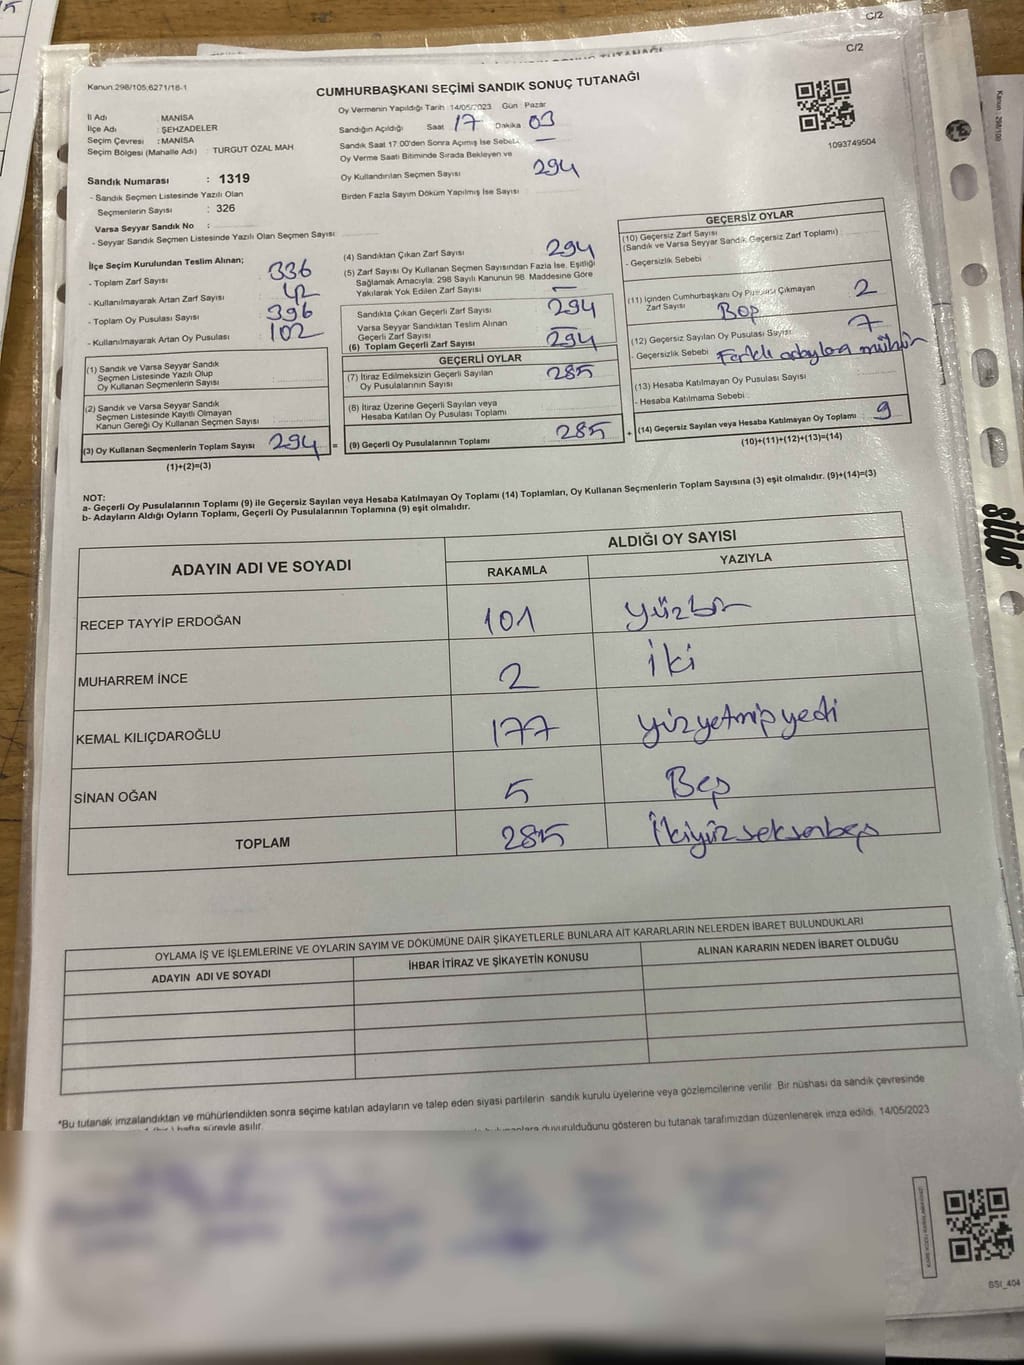 C/2
C/2
Kanun:298/105;6271/16-1
CUMHURBAŞKANI SEÇİMİ SANDIK SONUÇ TUTANAĞI
İl Adı : MANİSA
İlçe Adı : ŞEHZADELER
Seçim Çevresi : MANİSA
Seçim Bölgesi (Mahalle Adı) : TURGUT ÖZAL MAH.
Oy Vermenin Yapıldığı Tarih : 14/05/2023 Gün : Pazar
Sandığın Açıldığı Saat 17 Dakika 03
Sandık Saat 17:00'den Sonra Açımış İse Sebebi
Oy Verme Saati Bitiminde Sırada Bekleyen ve
Oy Kullandırılan Seçmen Sayısı 294
Birden Fazla Sayım Döküm Yapılmış İse Sayısı
1093749504
Sandık Numarası : 1319
- Sandık Seçmen Listesinde Yazılı Olan
Seçmenlerin Sayısı : 326
Varsa Seyyar Sandık No :
- Seyyar Sandık Seçmen Listesinde Yazılı Olan Seçmen Sayısı
İlçe Seçim Kurulundan Teslim Alınan;
- Toplam Zarf Sayısı : 336
- Kullanılmayarak Artan Zarf Sayısı : 42
- Toplam Oy Pusulası Sayısı : 396
- Kullanılmayarak Artan Oy Pusulası : 102
(1) Sandık ve Varsa Seyyar Sandık
Seçmen Listesinde Yazılı Olup
Oy Kullanan Seçmenlerin Sayısı
(2) Sandık ve Varsa Seyyar Sandık
Seçmen Listesinde Kayıtlı Olmayan
Kanun Gereği Oy Kullanan Seçmen Sayısı
(3) Oy Kullanan Seçmenlerin Toplam Sayısı 294 =
(1)+(2)=(3)
(4) Sandıktan Çıkan Zarf Sayısı 294
(5) Zarf Sayısı Oy Kullanan Seçmen Sayısından Fazla İse, Eşitliği
Sağlamak Amacıyla; 298 Sayılı Kanunun 98. Maddesine Göre
Yakılarak Yok Edilen Zarf Sayısı —
Sandıkta Çıkan Geçerli Zarf Sayısı 294
Varsa Seyyar Sandıktan Teslim Alınan
Geçerli Zarf Sayısı —
(6) Toplam Geçerli Zarf Sayısı 294
GEÇERLİ OYLAR
(7) İtiraz Edilmeksizin Geçerli Sayılan
Oy Pusulalarının Sayısı 285
(8) İtiraz Üzerine Geçerli Sayılan veya
Hesaba Katılan Oy Pusulası Toplamı
(9) Geçerli Oy Pusulalarının Toplamı 285 +
GEÇERSİZ OYLAR
(10) Geçersiz Zarf Sayısı
(Sandık ve Varsa Seyyar Sandık Geçersiz Zarf Toplamı)
- Geçersizlik Sebebi
(11) İçinden Cumhurbaşkanı Oy Pusulası Çıkmayan
Zarf Sayısı Boş 2
(12) Geçersiz Sayılan Oy Pusulası Sayısı 7
- Geçersizlik Sebebi Farklı adaylara mühür
(13) Hesaba Katılmayan Oy Pusulası Sayısı
- Hesaba Katılmama Sebebi
(14) Geçersiz Sayılan veya Hesaba Katılmayan Oy Toplamı 9
(10)+(11)+(12)+(13)=(14)
NOT:
a- Geçerli Oy Pusulalarının Toplamı (9) ile Geçersiz Sayılan veya Hesaba Katılmayan Oy Toplamı (14) Toplamları, Oy Kullanan Seçmenlerin Toplam Sayısına (3) eşit olmalıdır. (9)+(14)=(3)
b- Adayların Aldığı Oyların Toplamı, Geçerli Oy Pusulalarının Toplamına (9) eşit olmalıdır.
ADAYIN ADI VE SOYADI
ALDIĞI OY SAYISI
RAKAMLA YAZIYLA
RECEP TAYYİP ERDOĞAN 101 yüzbir
MUHARREM İNCE 2 iki
KEMAL KILIÇDAROĞLU 177 yüzyetmişyedi
SİNAN OĞAN 5 Beş
TOPLAM 285 ikiyüzseksenbeş
OYLAMA İŞ VE İŞLEMLERİNE VE OYLARIN SAYIM VE DÖKÜMÜNE DAİR ŞİKAYETLERLE BUNLARA AİT KARARLARIN NELERDEN İBARET BULUNDUKLARI
ADAYIN ADI VE SOYADI İHBAR İTİRAZ VE ŞİKAYETİN KONUSU ALINAN KARARIN NEDEN İBARET OLDUĞU
*Bu tutanak imzalandıktan ve mühürlendikten sonra seçime katılan adayların ve talep eden siyasi partilerin sandık kurulu üyelerine veya gözlemcilerine verilir. Bir nüshası da sandık çevresinde
hafta süreyle asılır.
duyurulduğunu gösteren bu tutanak tarafımızdan düzenlenerek imza edildi. 14/05/2023
SSI_404
stilo